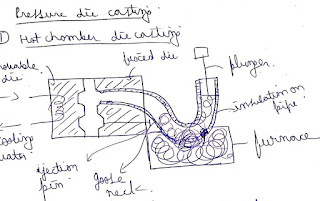 Pressure die casting
1) Hot chamber die casting
movable
die
fixed die
plunger
insulation on
pipe
furnace
goose
neck
ejection
pin
casting
water